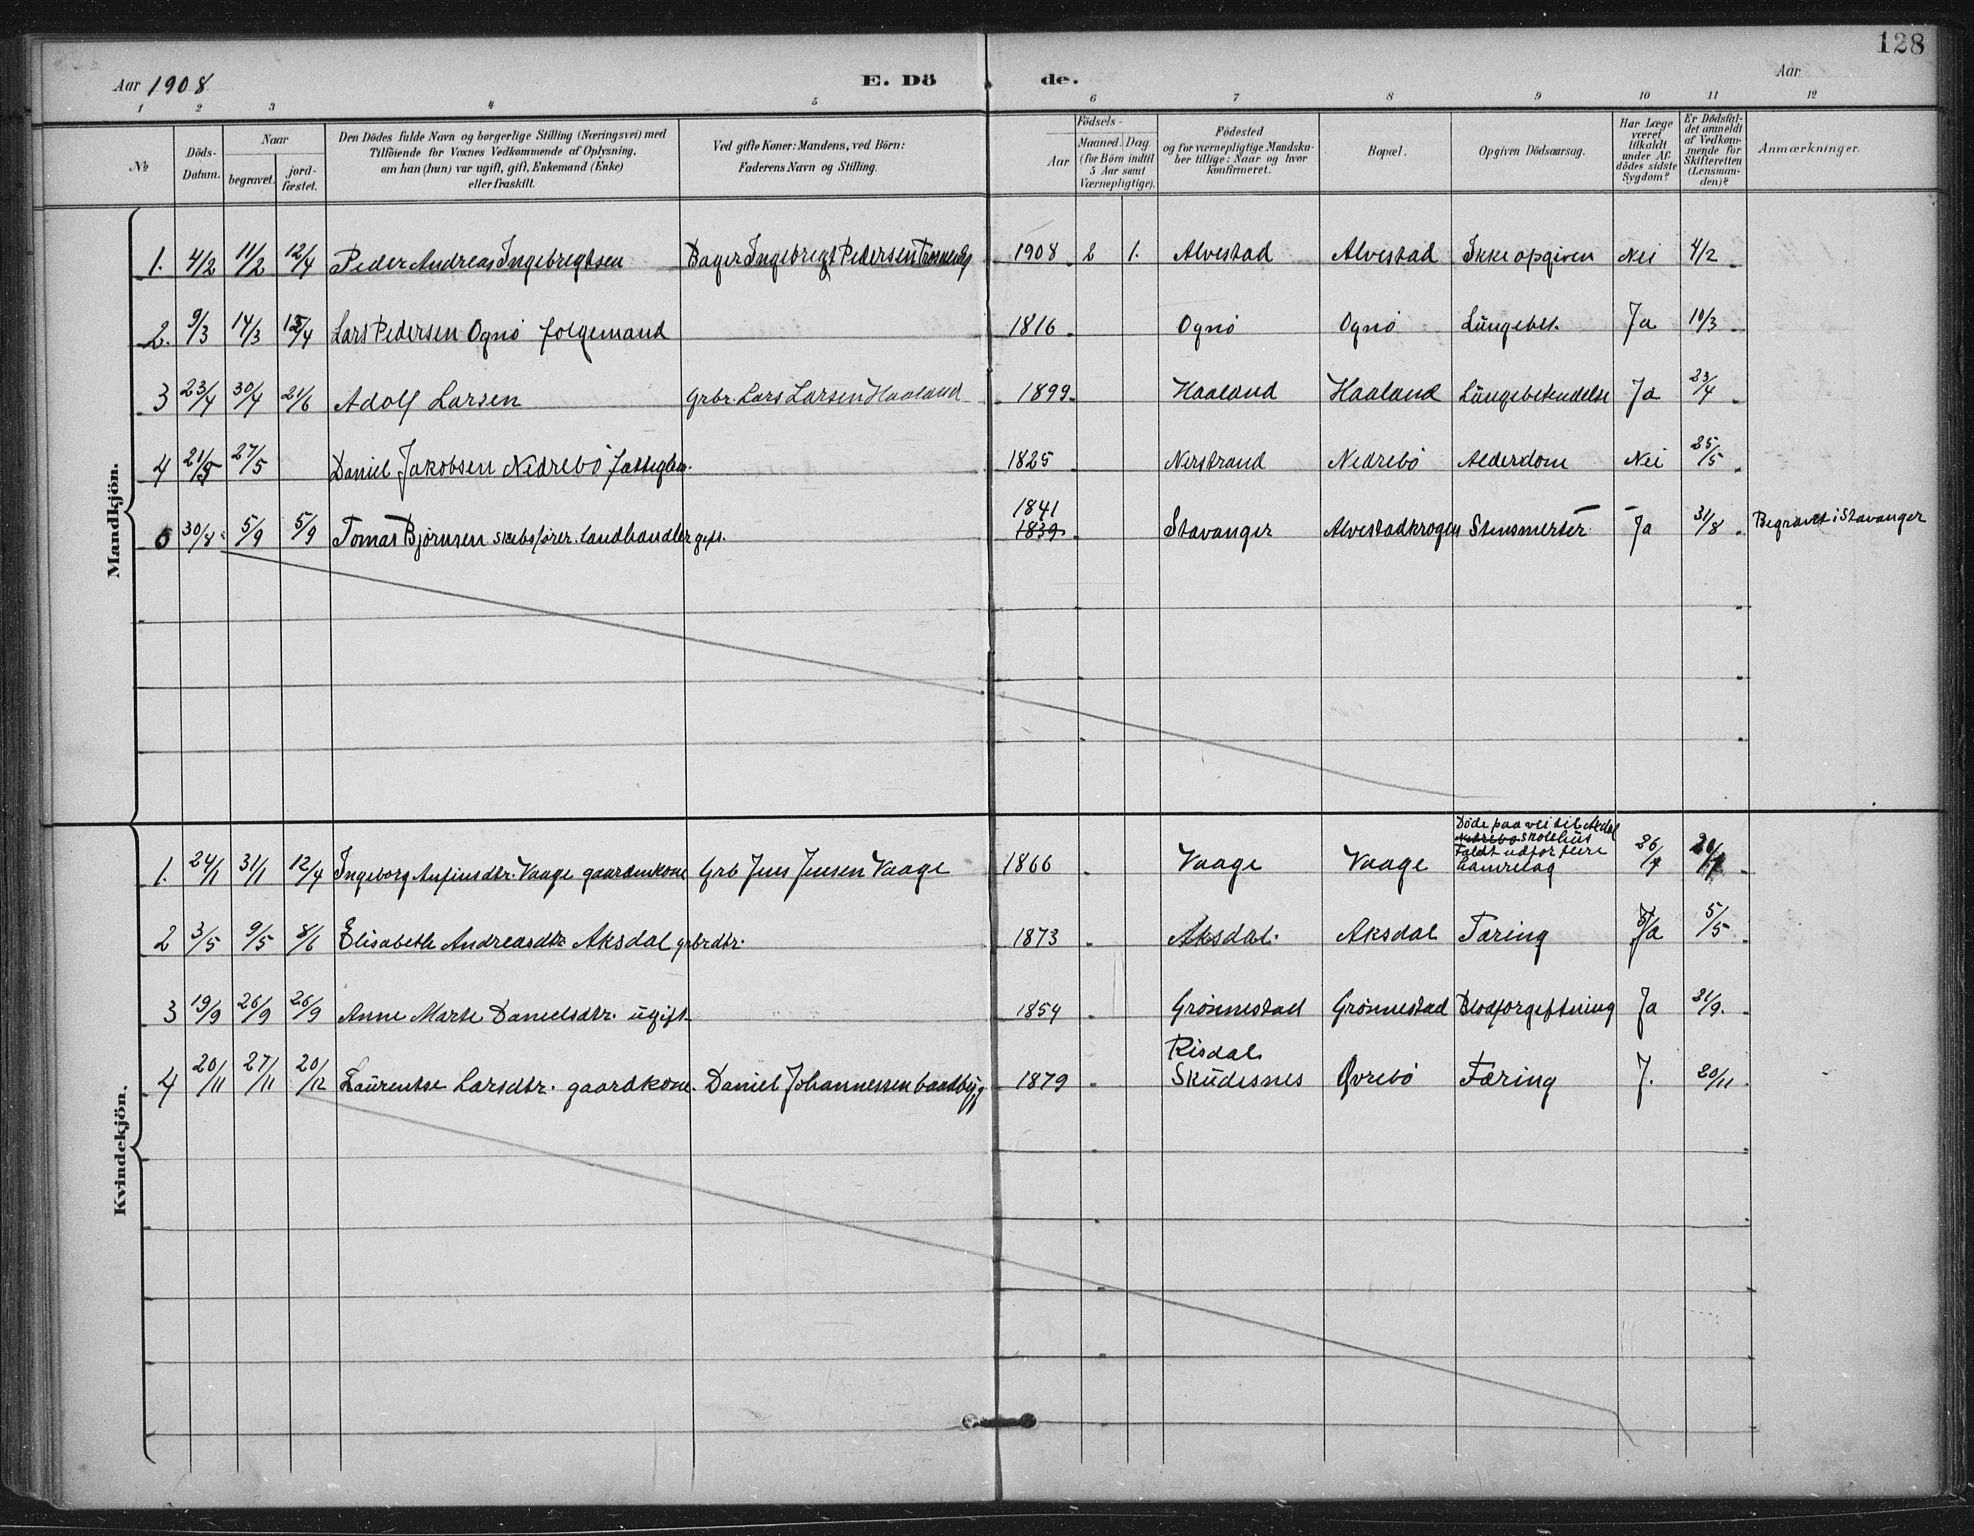 128
Aar 1908 E. Dö de. Aar
1 2 3 4 5 6 7 8 9 10 11 12
No
Döds-Datum.
Naar
begravet.
jord-fæstet.
Den Dödes fulde Navn og borgerlige Stilling (Næringsvei) med
Tilföiende for Voxnes Vedkommende af Oplysning,
om han (hun) var ugift, gift, Enkemand (Enke)
eller fraskilt.
Ved gifte Koner: Mandens, ved Börn:
Faderens Navn og Stilling.
Födsels-
Aar
Maaned. Dag.
(for Börn indtil
5 Aar samt
Værnepligtige).
Födested
og for værnepligtige Mandska-
ber tillige: Naar og hvor
konfirmeret.
Bopæl.
Opgiven Dödsaarsag.
Har Læge
været
tilkaldt
under Af-
dödes sidste
Sygdom?
Er Dödsfal-
det anmeldt
af Vedkom-
mende for
Skifteretten
(Lensman-
den)?
Anmærkninger.
Mandkjön.
1. 4/2 11/2 12/4 Peder Andreas Ingebregtsen Bager Ingebregt Pedersen 1908 2 1. Alvestad Alvestad Ikke opgiven Nei 4/2
2. 9/3 14/3 12/4 Lars Pedersen Ognö folgemand 1816 Ognö Ognö Lungebet. Ja 10/3
3 23/4 30/4 21/6 Adolf Larsen Grbr. Lars Larsen Haaland 1899 Haaland Haaland Lungebetendelse Ja 23/4
4 21/5 27/5 Daniel Jakobsen Nedrebö fattiglem. 1825 Nerstrand Nedrebö Alderdom Nei 25/5
1841
5 30/8 5/9 5/9 Tomas Björnsen skibsförer. landhandler gift. 1839 Stavanger Alvestadkrogen Stensmerter Ja 31/8 Begravet i Stavanger
Kvindekjön.
Döde paa vei til Aksdal
Nedrebö skolehus
Faldt udfor fleire
1. 24/1 31/1 12/4 Ingeborg Anfinsdtr. Vaage gaardmkone Grb Jens Jensen Vaage 1866 Vaage Vaage Aamrelag 26/1
2 3/5 9/5 8/6 Elisabeth Andreasdtr Aksdal grbrdtr. 1873 Aksdal. Aksdal Tæring Ja 5/5
3 19/9 26/9 26/9 Anne Marte Danielsdtr. ugift 1854 Grönnestad Grönnestad Blodforgiftning Ja 21/9.
Risdal
4 20/11 27/11 20/12 Laurentse Larsdtr. gaardkone. Daniel Johannessen baadbygg 1879 Skudesnes Övrebö Tæring J. 20/11